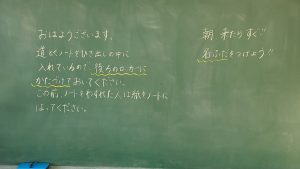 おはようございます。
道とくノートをひき出しの中に
入れているので、後ろのロッカーに
かたづけておいてください。
この前、ノートをわすれた人は紙をノートに
はってください。
朝 来たらすぐ!!
名ふだをつけよう!!